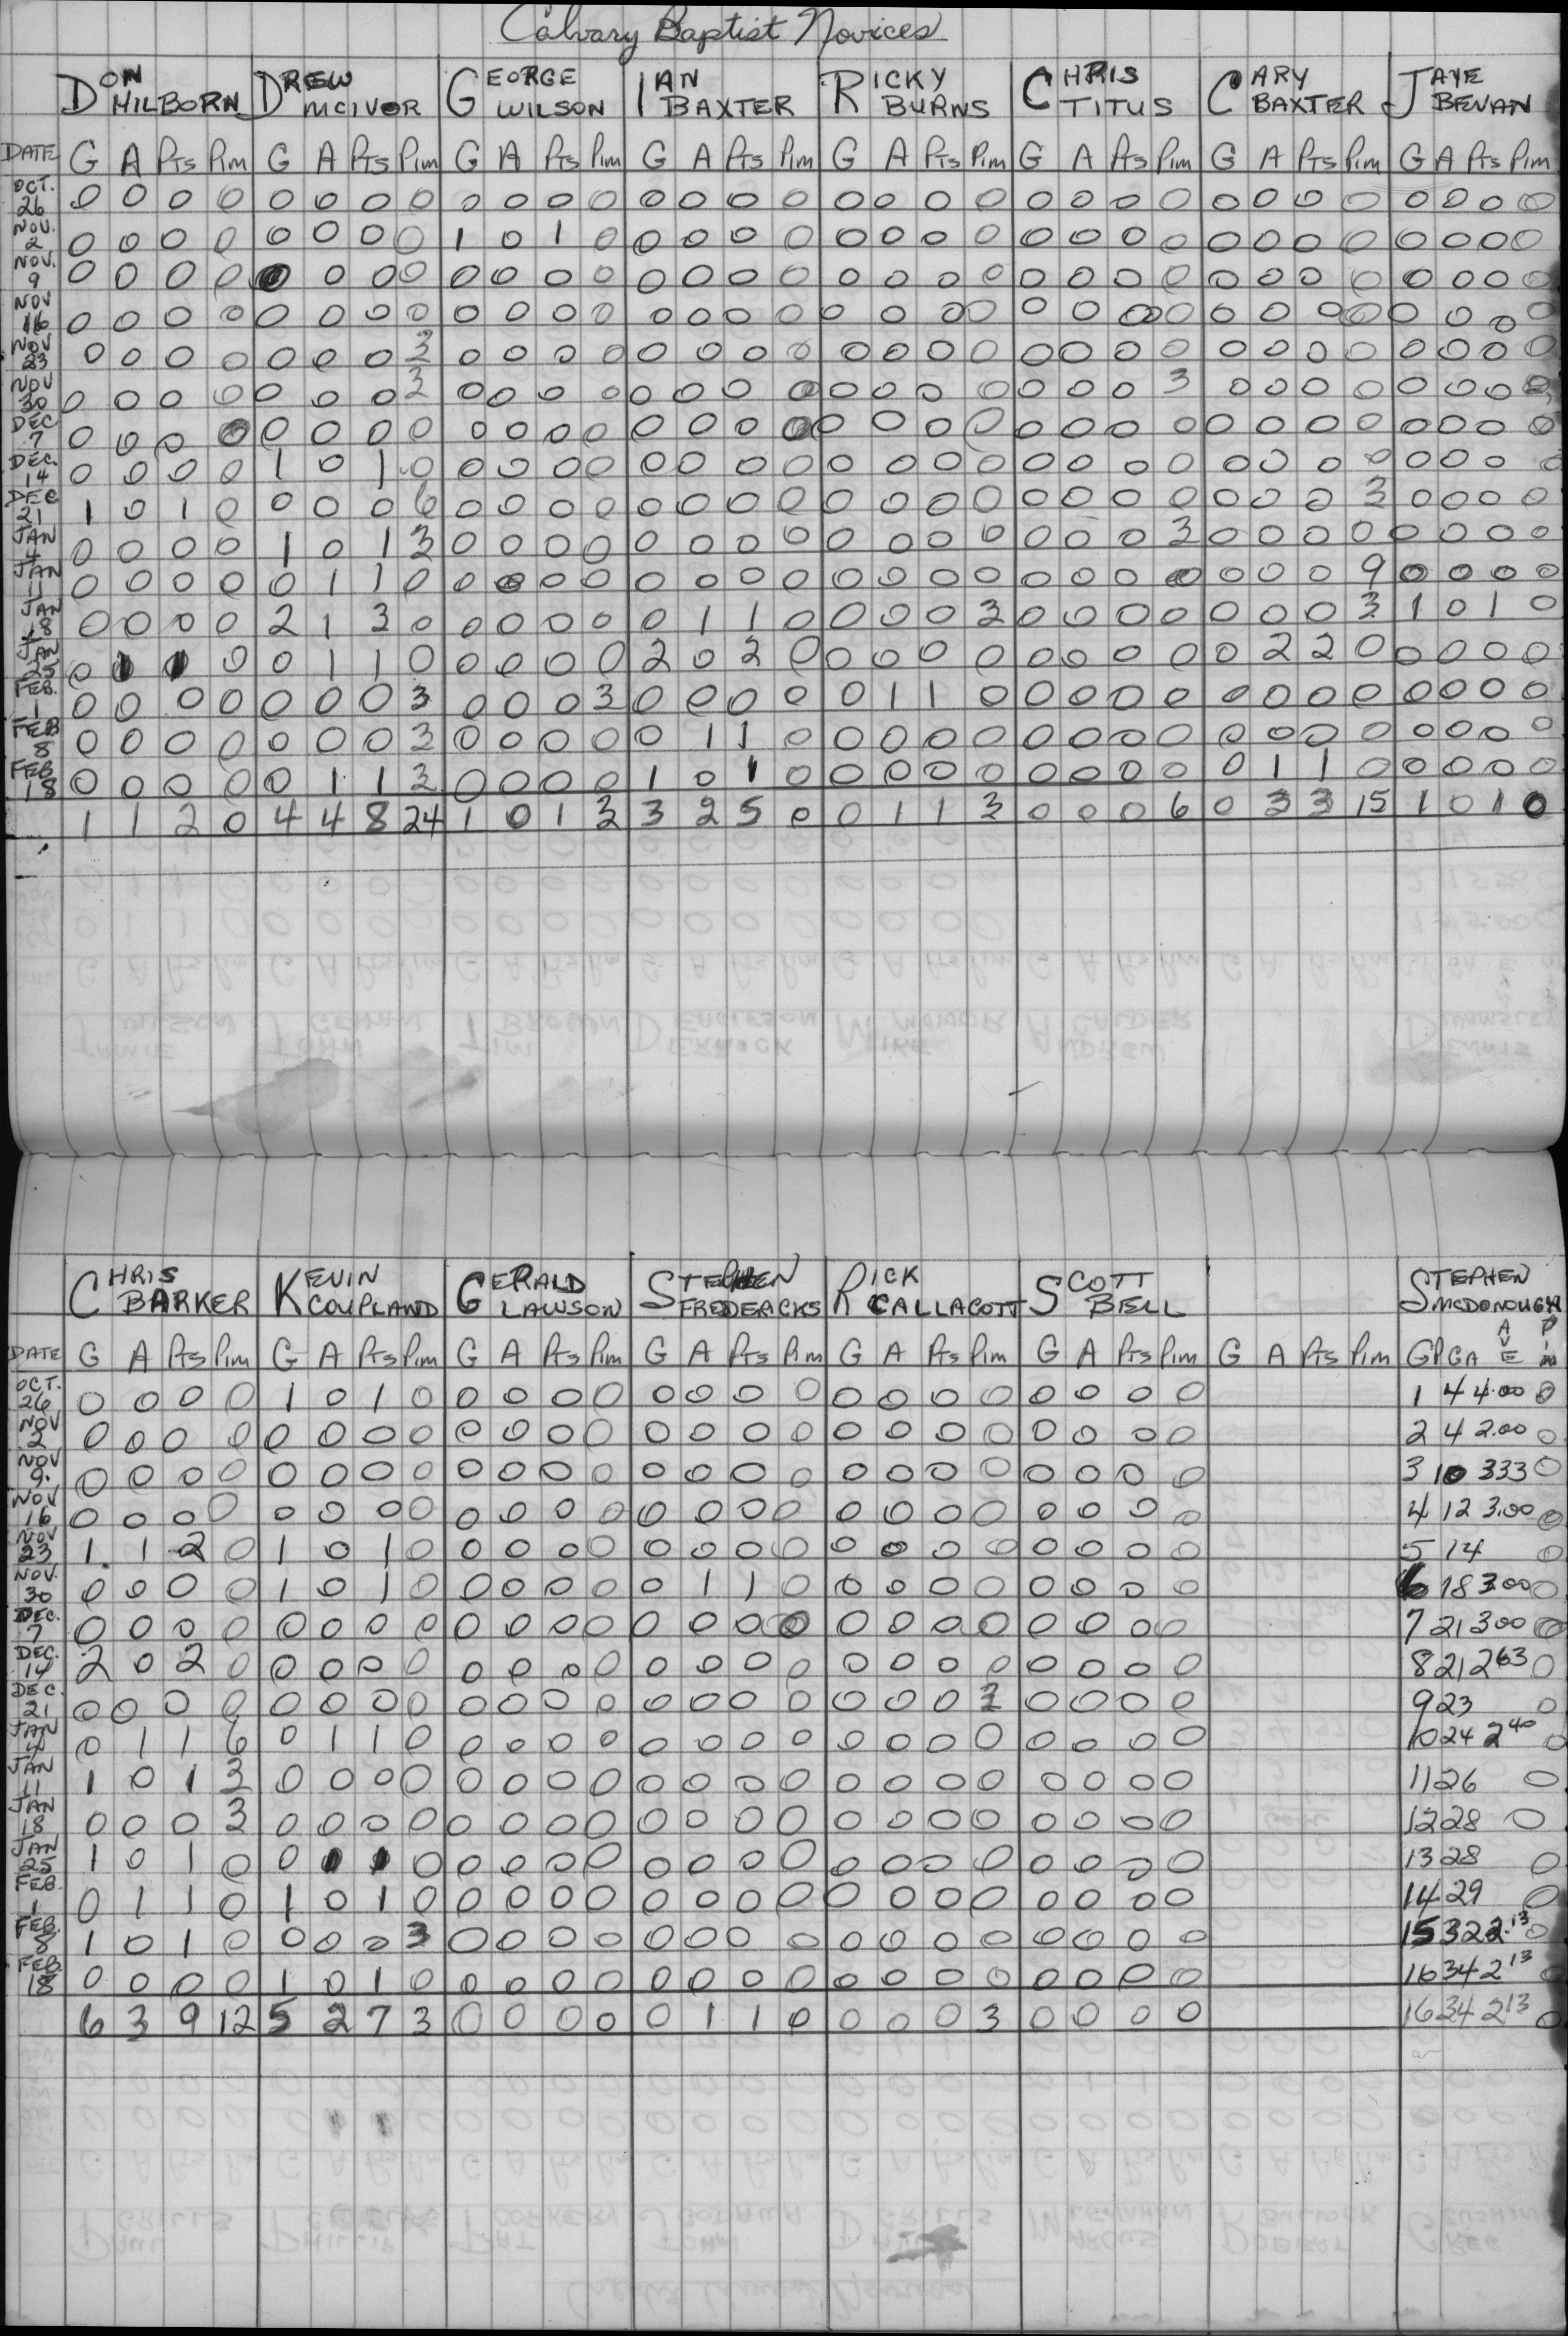 Calvary Baptist Novices
DON HILBORN DREW MCIVOR GEORGE WILSON IAN BAXTER RICKY BURNS CHRIS TITUS CARY BAXTER JAYE BEVAN
DATE G A Pts Pim G A Pts Pim G A Pts Pim G A Pts Pim G A Pts Pim G A Pts Pim G A Pts Pim G A Pts Pim
OCT. 26 0 0 0 0 0 0 0 0 0 0 0 0 0 0 0 0 0 0 0 0 0 0 0 0 0 0 0 0 0 0 0 0
NOV. 2 0 0 0 0 0 0 0 0 1 0 1 0 0 0 0 0 0 0 0 0 0 0 0 0 0 0 0 0 0 0 0 0
NOV. 9 0 0 0 0 0 0 0 0 0 0 0 0 0 0 0 0 0 0 0 0 0 0 0 0 0 0 0 0 0 0 0 0
NOV 16 0 0 0 0 0 0 0 0 0 0 0 0 0 0 0 0 0 0 0 0 0 0 0 0 0 0 0 0 0 0 0 0
NOV 23 0 0 0 0 0 0 0 3 0 0 0 0 0 0 0 0 0 0 0 0 0 0 0 0 0 0 0 0 0 0 0 0
NOV 30 0 0 0 0 0 0 0 3 0 0 0 0 0 0 0 0 0 0 0 0 0 0 0 3 0 0 0 0 0 0 0 0
DEC 7 0 0 0 0 0 0 0 0 0 0 0 0 0 0 0 0 0 0 0 0 0 0 0 0 0 0 0 0 0 0 0 0
DEC. 14 0 0 0 0 1 0 1 0 0 0 0 0 0 0 0 0 0 0 0 0 0 0 0 0 0 0 0 0 0 0 0 0
DEC 21 1 0 1 0 0 0 0 6 0 0 0 0 0 0 0 0 0 0 0 0 0 0 0 0 0 0 0 3 0 0 0 0
JAN 4 0 0 0 0 1 0 1 3 0 0 0 0 0 0 0 0 0 0 0 0 0 0 0 3 0 0 0 0 0 0 0 0
JAN 11 0 0 0 0 0 1 1 0 0 0 0 0 0 0 0 0 0 0 0 0 0 0 0 0 0 0 0 9 0 0 0 0
JAN 18 0 0 0 0 2 1 3 0 0 0 0 0 0 1 1 0 0 0 0 3 0 0 0 0 0 0 0 3 1 0 1 0
JAN 25 0 1 1 0 0 1 1 0 0 0 0 0 2 0 2 0 0 0 0 0 0 0 0 0 0 2 2 0 0 0 0 0
FEB. 1 0 0 0 0 0 0 0 3 0 0 0 3 0 0 0 0 0 1 1 0 0 0 0 0 0 0 0 0 0 0 0 0
FEB 8 0 0 0 0 0 0 0 3 0 0 0 0 0 1 1 0 0 0 0 0 0 0 0 0 0 0 0 0 0 0 0 0
FEB. 18 0 0 0 0 0 1 1 3 0 0 0 0 1 0 1 0 0 0 0 0 0 0 0 0 0 1 1 0 0 0 0 0
1 1 2 0 4 4 8 24 1 0 1 3 3 2 5 0 0 1 1 3 0 0 0 6 0 3 3 15 1 0 1 0
CHRIS BARKER KEVIN COUPLAND GERALD LAWSON STEPHEN FREDERICKS RICK CALLACOTT SCOTT BELL STEPHEN MCDONOUGH
DATE G A Pts Pim G A Pts Pim G A Pts Pim G A Pts Pim G A Pts Pim G A Pts Pim G A Pts Pim GP GA AVE PIM
OCT. 26 0 0 0 0 1 0 1 0 0 0 0 0 0 0 0 0 0 0 0 0 0 0 0 0 1 4 4.00 0
NOV 2 0 0 0 0 0 0 0 0 0 0 0 0 0 0 0 0 0 0 0 0 0 0 0 0 2 4 2.00 0
NOV 9. 0 0 0 0 0 0 0 0 0 0 0 0 0 0 0 0 0 0 0 0 0 0 0 0 3 10 333 0
NOV 16 0 0 0 0 0 0 0 0 0 0 0 0 0 0 0 0 0 0 0 0 0 0 0 0 4 12 3.00 0
NOV 23 1 1 2 0 1 0 1 0 0 0 0 0 0 0 0 0 0 0 0 0 0 0 0 0 5 14 0
NOV. 30 0 0 0 0 1 0 1 0 0 0 0 0 0 1 1 0 0 0 0 0 0 0 0 0 6 18 3.00 0
DEC. 7 0 0 0 0 0 0 0 0 0 0 0 0 0 0 0 0 0 0 0 0 0 0 0 0 7 21 300 0
DEC. 14 2 0 2 0 0 0 0 0 0 0 0 0 0 0 0 0 0 0 0 0 0 0 0 0 8 21 263 0
DEC. 21 0 0 0 0 0 0 0 0 0 0 0 0 0 0 0 0 0 0 0 3 0 0 0 0 9 23 0
JAN 4 0 1 1 6 0 1 1 0 0 0 0 0 0 0 0 0 0 0 0 0 0 0 0 0 10 24 240 0
JAN 11 1 0 1 3 0 0 0 0 0 0 0 0 0 0 0 0 0 0 0 0 0 0 0 0 11 26 0
JAN 18 0 0 0 3 0 0 0 0 0 0 0 0 0 0 0 0 0 0 0 0 0 0 0 0 12 28 0
JAN 25 1 0 1 0 0 1 1 0 0 0 0 0 0 0 0 0 0 0 0 0 0 0 0 0 13 28 0
FEB. 1 0 1 1 0 1 0 1 0 0 0 0 0 0 0 0 0 0 0 0 0 0 0 0 0 14 29 0
FEB. 8 1 0 1 0 0 0 0 3 0 0 0 0 0 0 0 0 0 0 0 0 0 0 0 0 15 32 2.13 0
FEB. 18 0 0 0 0 1 0 1 0 0 0 0 0 0 0 0 0 0 0 0 0 0 0 0 0 16 34 213 0
6 3 9 12 5 2 7 3 0 0 0 0 0 1 1 0 0 0 0 3 0 0 0 0 16 34 213 0